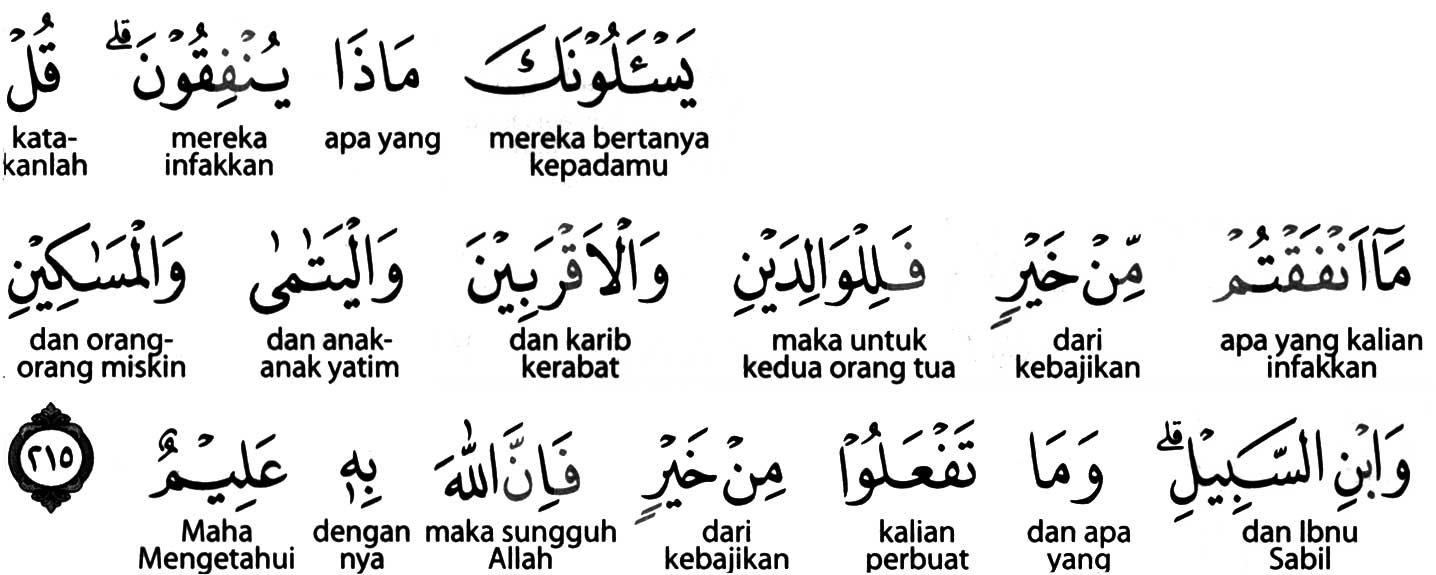 يَسْـَٔلُوْنَكَ مَاذَا يُنْفِقُوْنَ ۗ قُلْ
mereka bertanya apa yang mereka kata-
kepadamu infakkan kanlah
مَآ اَنْفَقْتُمْ مِّنْ خَيْرٍ فَلِلْوَالِدَيْنِ وَالْاَقْرَبِيْنَ وَالْيَتٰمٰى وَالْمَسٰكِيْنِ
apa yang kalian dari maka untuk dan karib dan anak- dan orang-
infakkan kebajikan kedua orang tua kerabat anak yatim orang miskin
وَابْنِ السَّبِيْلِ ۗ وَمَا تَفْعَلُوْا مِنْ خَيْرٍ فَاِنَّ اللّٰهَ بِهٖ عَلِيْمٌ ٢١٥
dan Ibnu dan apa kalian dari maka sungguh dengan Maha
Sabil yang perbuat kebajikan Allah nya Mengetahui